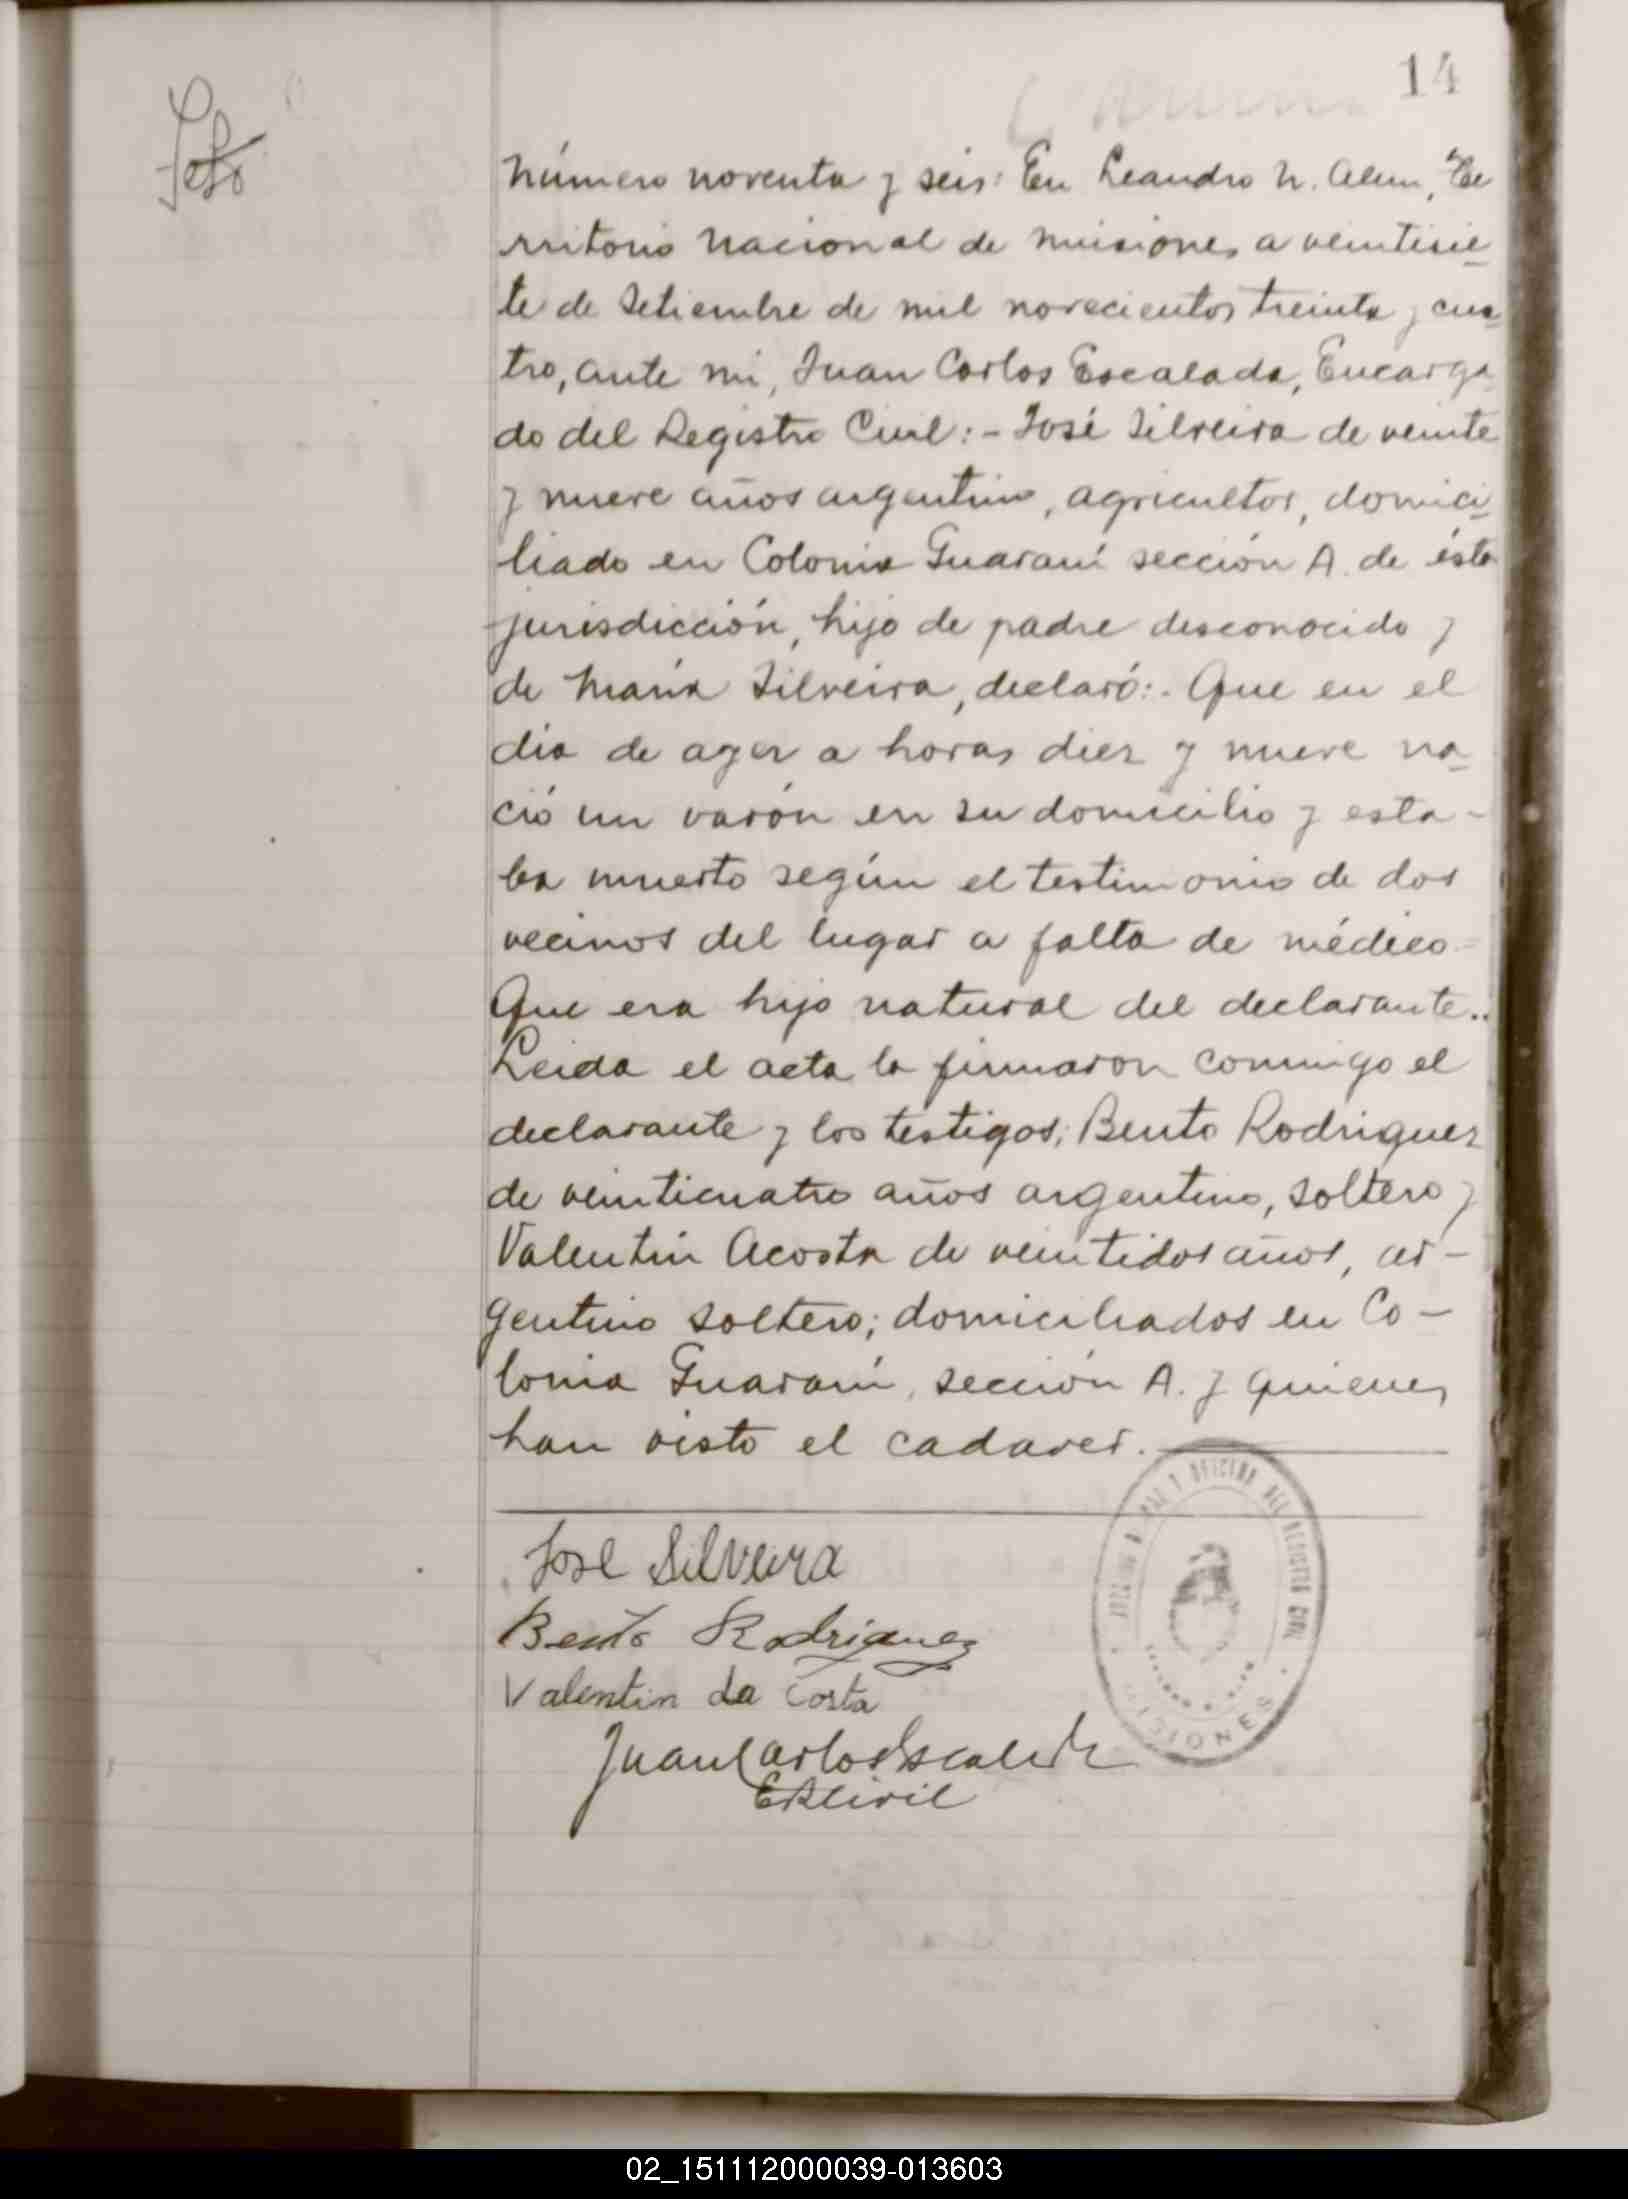 14
Feto
Número noventa y seis: En Leandro N. Alem, Te
rritorio Nacional de Misiones a veintisie-
te de Setiembre de mil novecientos treinta y cua-
tro, ante mi, Juan Carlos Escalada, Encarga-
do del Registro Civil:- José Silveira de veinte
y nueve años argentino, agricultor, domici-
liado en Colonia Guaraní sección A. de ésta
jurisdicción, hijo de padre desconocido y
de María Silveira, declaró:- Que en el
día de ayer a horas diez y nueve na-
ció un varón en su domicilio y esta-
ba muerto según el testimonio de dos
vecinos del lugar a falta de médico.-
Que era hijo natural del declarante..
Leida el acta la firmaron conmigo el
declarante y los testigos; Bento Rodriguez
de veinticuatro años argentino, soltero y
Valentín Acosta de veintidos años, ar-
gentino soltero; domiciliados en Co-
lonia Guaraní, sección A. y quienes
han visto el cadaver.
JUZGADO DE PAZ Y OFICINA DEL REGISTRO CIVIL
MISIONES
José Silveira
Bento Rodriguez
Valentin da Costa
Juan Carlos Escalada
ERCivil
02_151112000039-013603